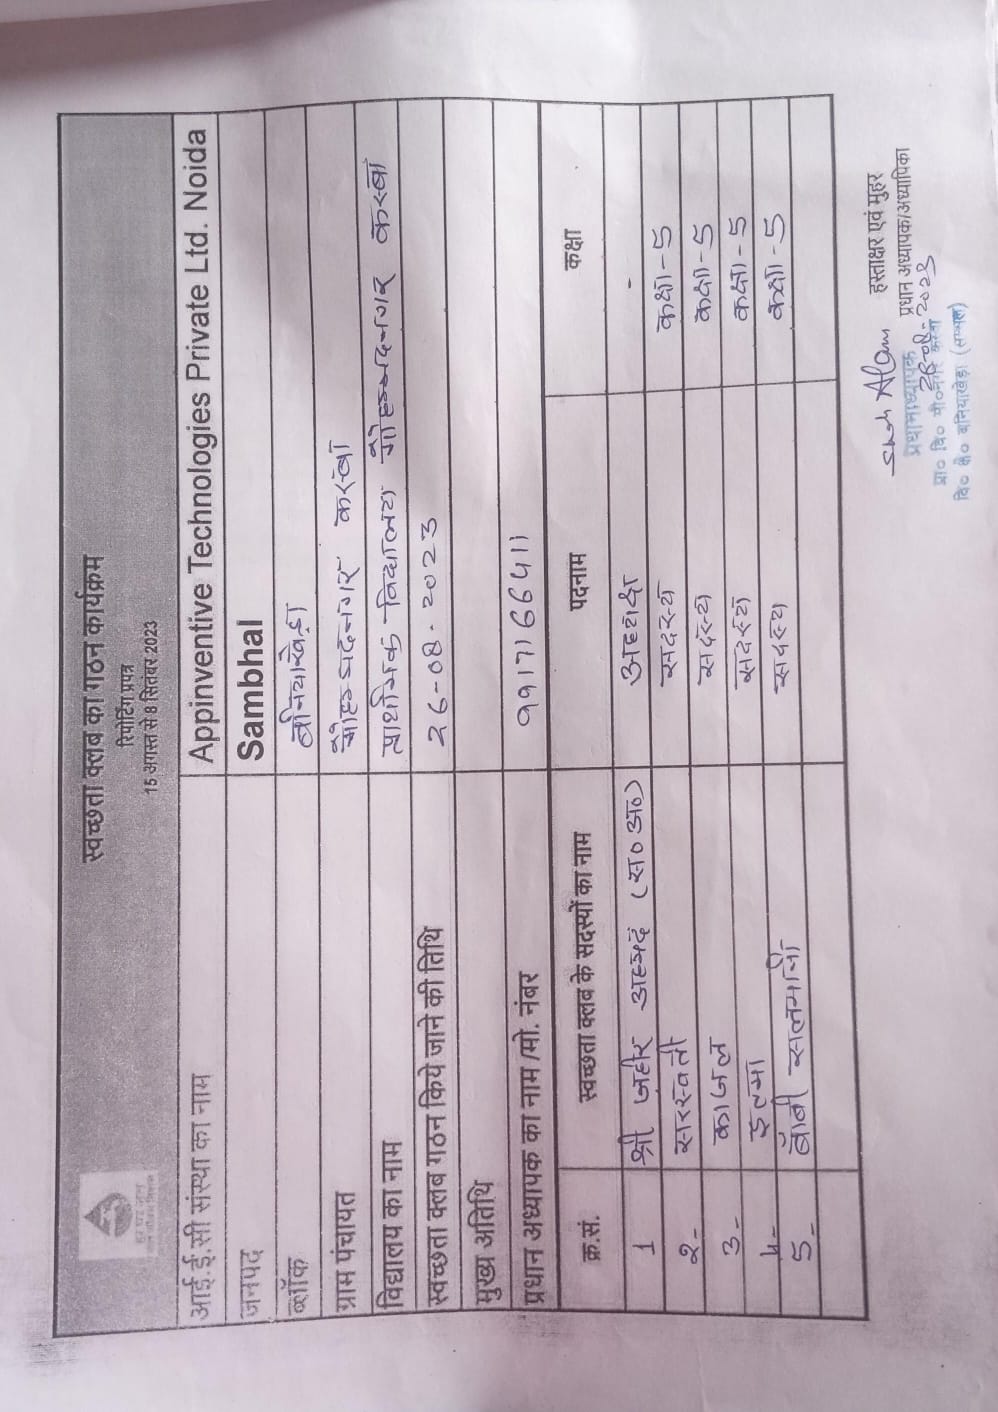 स्वच्छता क्लब का गठन कार्यक्रम
रिपोर्टिंग प्रपत्र
15 अगस्त से 8 सितंबर 2023
हर घर जल
जल जीवन मिशन
आई.ई.सी संस्था का नाम Appinventive Technologies Private Ltd. Noida
जनपद Sambhal
ब्लॉक बनियाखेड़ा
ग्राम पंचायत मौहम्मदनगर कस्बा
विद्यालय का नाम प्राथमिक विद्यालय मौहम्मदनगर कस्बा
स्वच्छता क्लब गठन किये जाने की तिथि 26-08-2023
मुख्य अतिथि
प्रधान अध्यापक का नाम /मो. नंबर 9917166411
क्र.सं. स्वच्छता क्लब के सदस्यों का नाम पदनाम कक्षा
1 श्री ज़हीर अहमद (स०अ०) अध्यक्ष -
2- सरस्वती सदस्य कक्षा-5
3- काजल सदस्य कक्षा-5
4- इल्मा सदस्य कक्षा-5
5- बॉबी सलमानी सदस्य कक्षा-5
हस्ताक्षर एवं मुहर
प्रधान अध्यापक/अध्यापिका
Shah Alam
26-08-2023
प्रधानाध्यापक
प्रा० वि० मौ०नगर कस्बा
वि० क्षे० बनियाखेड़ा (सम्भल)